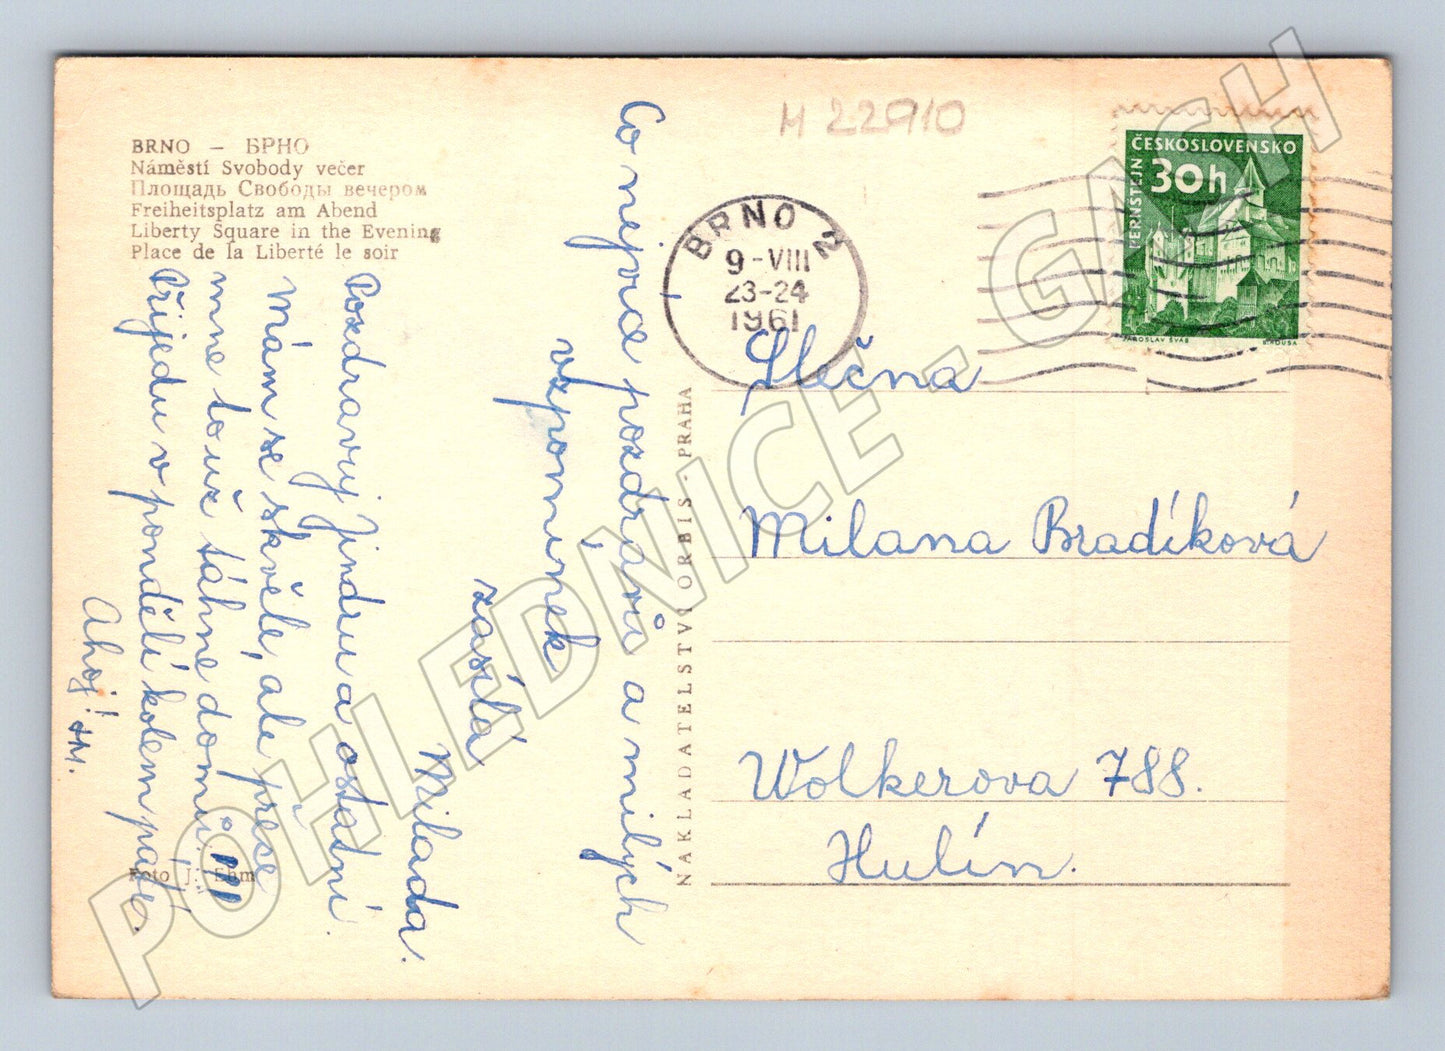 BRNO – БРНО
Náměstí Svobody večer
Площадь Свободы вечером
Freiheitsplatz am Abend
Liberty Square in the Evening
Place de la Liberté le soir
H 22910
ČESKOSLOVENSKO
30h
PERNŠTEJN
JAROSLAV ŠVÁB
BRNO 2
9-VIII
23-24
1961
Co nejvíce pozdravů a milých
vzpomínek
zasílá
Milada.
Pozdravuj Jindru a ostatní.
Mám se skvěle, ale přese
mne to už táhne domů!!!
Přijedu v pondělí kolem páté.
Ahoj! M.
Slečna
Milana Bradíková
Wolkerova 788.
Hulín.
NAKLADATELSTVÍ ORBIS - PRAHA
Foto J. Ehm
POHLEDNICE - GASH